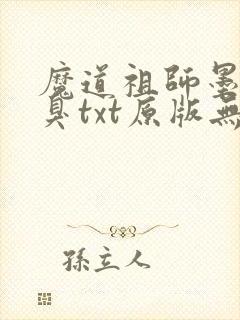 魔道祖師墨
臭txt原版無
孫主人